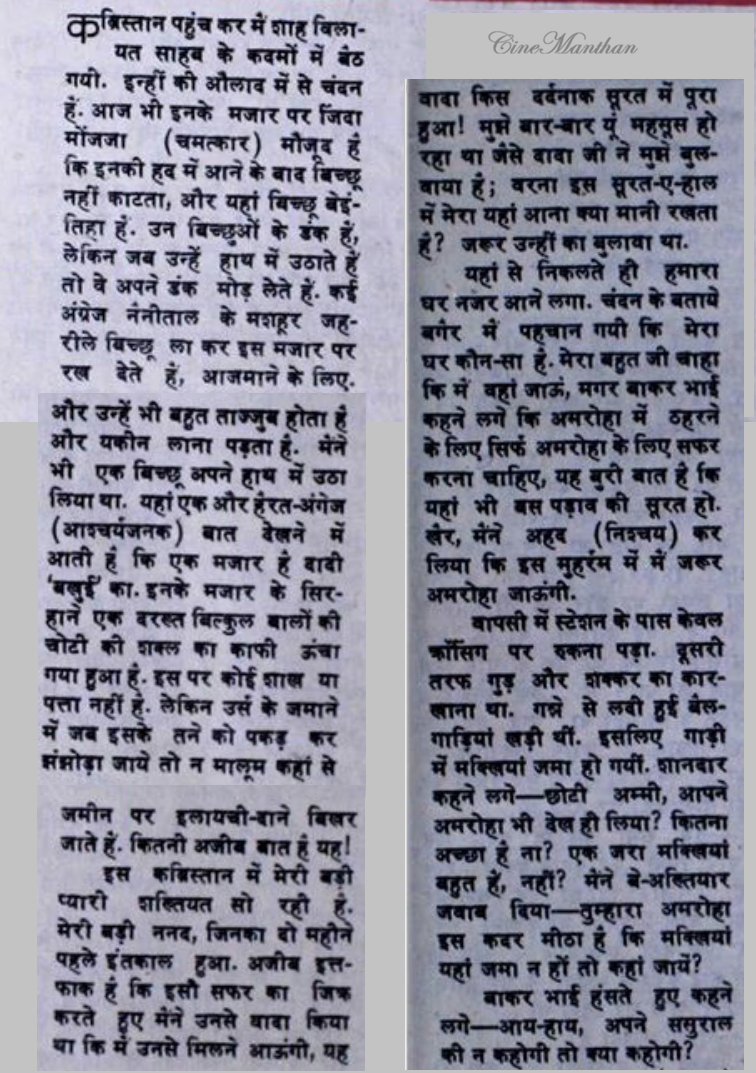 कब्रिस्तान पहुंच कर में शाह विला-
यत साहब के कदमों में बैठ
गयी. इन्हीं की औलाद में से चंदन
हैं. आज भी इनके मजार पर जिंदा
मोजजा (चमत्कार) मौजूद है
कि इनकी हद में आने के बाद बिच्छू
नहीं काटता, और यहां बिच्छू बेइं-
तिहा हैं. उन बिच्छुओं के डंक हैं,
लेकिन जब उन्हें हाथ में उठाते हैं
तो वे अपने डंक मोड़ लेते हैं. कई
अंग्रेज नैनीताल के मशहूर जह-
रीले बिच्छू ला कर इस मजार पर
रख देते हैं, आजमाने के लिए.
और उन्हें भी बहुत ताज्जुब होता है
और यकीन लाना पड़ता है. मैंने
भी एक बिच्छू अपने हाथ में उठा
लिया था. यहां एक और हैरत-अंगेज
(आश्चर्यजनक) बात देखने में
आती है कि एक मजार है दादी
'बखुई' का. इनके मजार के सिर-
हाने एक दरख्त बिल्कुल बालों की
चोटी की शक्ल का काफी ऊंचा
गया हुआ है. इस पर कोई शाख या
पत्ता नहीं है. लेकिन उर्स के जमाने
में जब इसके तने को पकड़ कर
झंझोड़ा जाये तो न मालूम कहां से
जमीन पर इलायची-दाने बिखर
जाते हैं. कितनी अजीब बात है यह!
इस कब्रिस्तान में मेरी बड़ी
प्यारी शख्सियत सो रही है.
मेरी बड़ी ननद, जिनका दो महीने
पहले इंतकाल हुआ. अजीब इत्त-
फाक है कि इसी सफर का जिक्र
करते हुए मैंने उनसे वादा किया
था कि में उनसे मिलने आऊंगी, यह
CineManthan
वादा किस दर्दनाक सूरत में पूरा
हुआ! मुझे बार-बार यूं महसूस हो
रहा था जैसे दादा जी ने मुझे बुल-
वाया है; वरना इस सूरत-ए-हाल
में मेरा यहां आना क्या मानी रखता
है? जरूर उन्हीं का बुलावा था.
यहां से निकलते ही हमारा
घर नजर आने लगा. चंदन के बताये
बगैर में पहचान गयी कि मेरा
घर कौन-सा है. मेरा बहुत जी चाहा
कि में वहां जाऊं, मगर बाकर भाई
कहने लगे कि अमरोहा में ठहरने
के लिए सिर्फ अमरोहा के लिए सफर
करना चाहिए, यह बुरी बात है कि
यहां भी बस पड़ाव की सूरत हो.
खैर, मैंने अहद (निश्चय) कर
लिया कि इस मुहर्रम में में जरूर
अमरोहा जाऊंगी.
वापसी में स्टेशन के पास केवल
क्रॉसिंग पर रुकना पड़ा. दूसरी
तरफ गुड़ और शक्कर का कार-
खाना था. गन्ने से लदी हुई बैल-
गाड़ियां खड़ी थीं. इसलिए गाड़ी
में मक्खियां जमा हो गयीं. शानदार
कहने लगे—छोटी अम्मी, आपने
अमरोहा भी देख ही लिया? कितना
अच्छा है ना? एक जरा मक्खियां
बहुत हैं, नहीं? मैंने बे-अख्तियार
जवाब दिया—तुम्हारा अमरोहा
इस कदर मीठा है कि मक्खियां
यहां जमा न हों तो कहां जायें?
बाकर भाई हंसते हुए कहने
लगे—आय-हाय, अपने ससुराल
की न कहोगी तो क्या कहोगी?